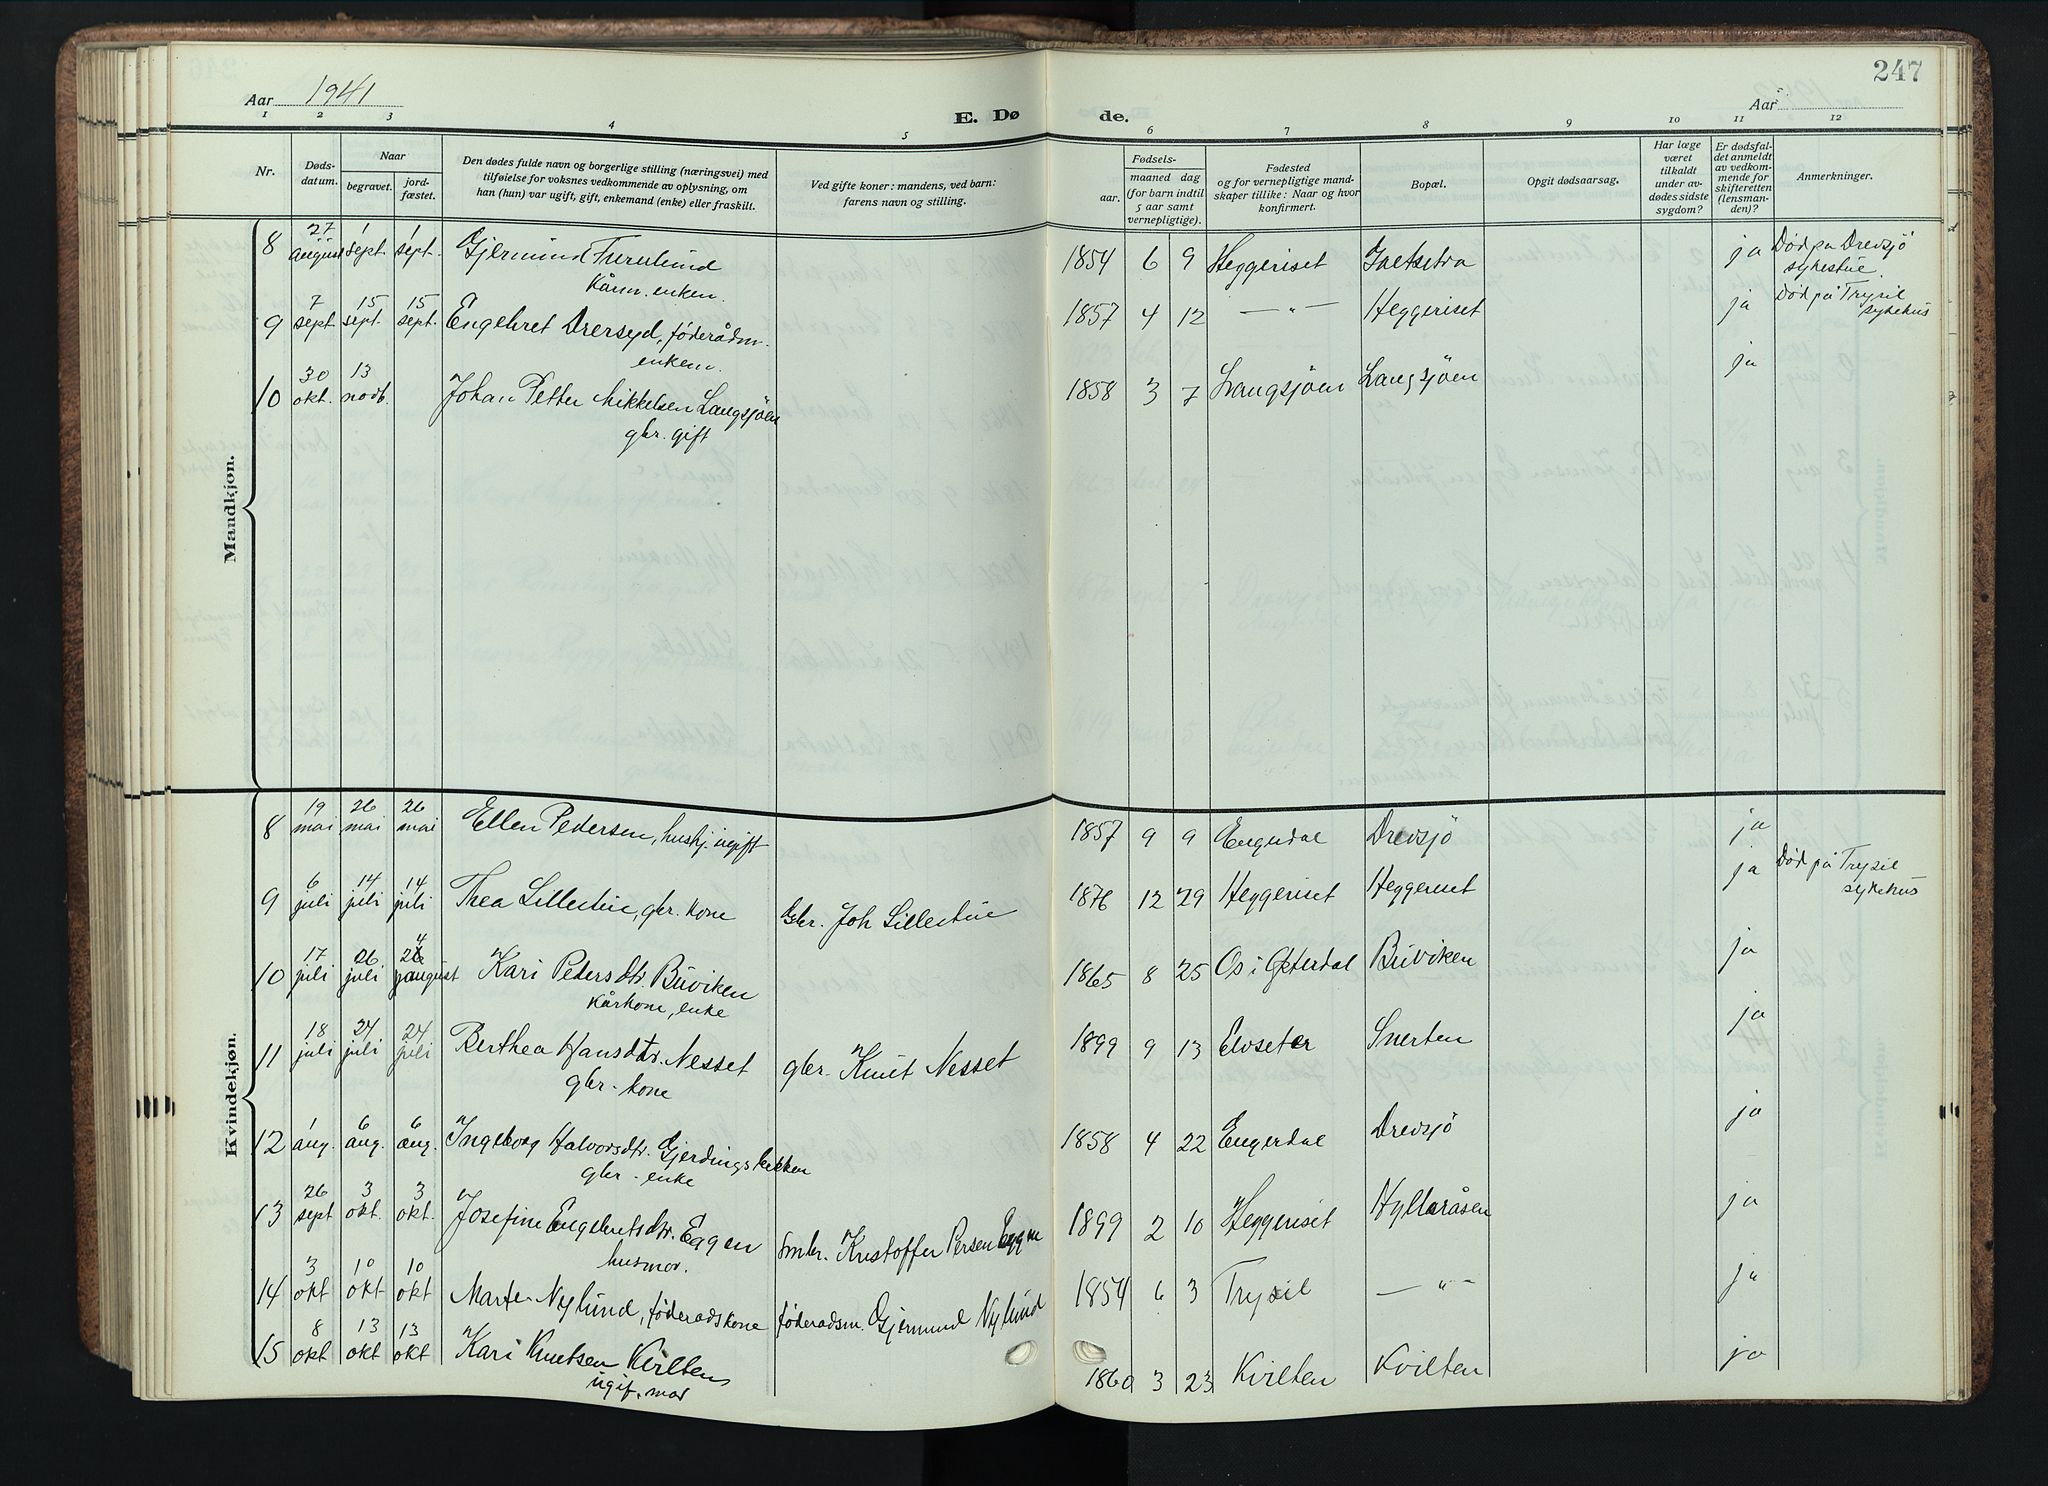 247
Aar 1941
E. Dø
de.
Aar
1 2 3 4 5 6 7 8 9 10 11 12
Nr.
Dødsdatum.
Naar
begravet.
jordfæstet.
Den dødes fulde navn og borgerlige stilling (næringsvei) med
tilføielse for voksnes vedkommende av oplysning, om
han (hun) var ugift, gift, enkemand (enke) eller fraskilt.
Ved gifte koner: mandens, ved barn:
farens navn og stilling.
Fødsels-
aar.
maaned dag
(for barn indtil
5 aar samt
vernepligtige).
Fødested
og for vernepligtige mand-
skaper tillike: Naar og hvor
konfirmert.
Bopæl.
Opgit dødsaarsag.
Har læge
været
tilkaldt
under av-
dødes sidste
sygdom?
Er dødsfal-
det anmeldt
av vedkom-
mende for
skifteretten
(lensman-
den)?
Anmerkninger.
Mandkjøn.
8 27 august 1 sept. 1 sept. Gjermund Furulund 1854 6 9 Heggeriset Galtsetra ja Død på Drevsjö
Kårm. enkem. sykestue.
9 7 sept 15 sept. 15 sept. Engebret Drersyd, föderådm. 1857 4 12 — " — Heggeriset ja Död på Trysil
enkem. sykehus
10 30 okt. 13 novb. Johan Petter Mikkelsen Langsjöen 1858 3 7 Langsjöen Langsjöen ja
gbr. gift
Kvindekjøn.
8 19 mai 26 mai 26 mai Ellen Pedersen, hushj. ugift 1857 9 9 Engerdal Drevsjö ja
9 6 juli 14 juli 14 juli Thea Lillestue, gbr. kone Gbr. Joh Lillestue 1876 12 29 Heggeriset Heggeriset ja Död på Trysil
sykehus
10 17 juli 26 juli 4 august Kari Pedersdtr. Buviken 1865 8 25 Os i Østerdal Buviken ja
kårkone, enke
11 18 juli 24 juli 24 juli Berthea Hansdtr. Nesset gbr. Knut Nesset 1899 9 13 Elvseter Snerten ja
gbr. kone
12 1 aug. 6 aug. 6 aug. Ingeborg Halvorsdtr. Gjerdingsbekken 1858 4 22 Engerdal Drevsjö ja
gbr. enke
13 26 sept 3 okt. 3 okt. Josefine Engebretsdtr. Eggen Smbr. Kristoffer Persen Eggen 1899 2 10 Heggeriset Hylleråsen ja
husmor.
14 3 okt 10 okt. 10 okt Marte Nylund, föderadskone föderadsm. Gjermund Nylund 1854 6 3 Trysil — " — ja
15 8 okt 13 okt 13 okt Kari Knutsen Kvilten 1860 3 23 Kvilten Kvilten ja
ugif. mor